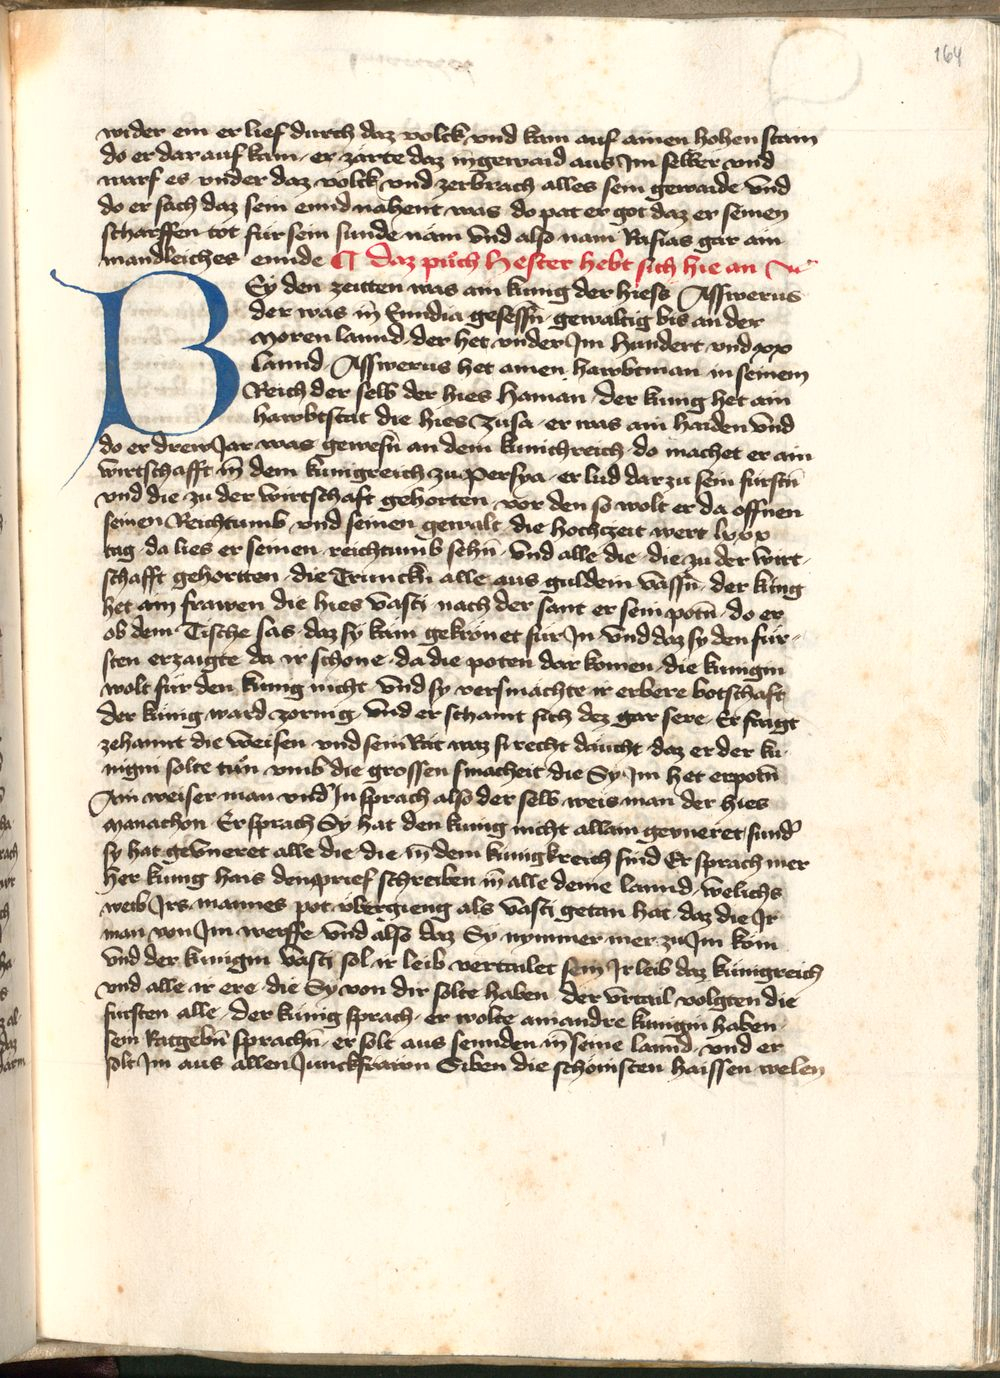 164
wider ein er lief durch daz volck vnd kam auf ainen hohen stain
do er darauf kam · er zarte daz ingewaid aus Im selber vnd
warf es vnder daz volck vnd zerbrach alles sein gewaide vnd
do er sach daz sein ennd nahent was do pat er got daz er seinen
scharffen tot fur sein sunde nam vnd also nam Rasias gar ain
mandleiches ennde ¶ daz půch Hester hebt sich hie an
BSy den zeitten was ain kunig der hiess Asswerus
der was in Inndia gesessn̄ · gewaltig bis an der
Moren lannd · der het vnder Im hundert vnd xx
lannd Asswerus het ainen hawbtman in seinem
Reich der selb der hies Haman · der kunig het ain
hawbtstat die hies Zusa · er was ain haiden vnd
do er drew Jar was gewesn̄ an dem kunichreich · do machet er ain
wirtschafft in dem kunigreich zu Persya · er lud darzu sein furstn̄
vnd die zu der wirtschaft gehorten · vor den so wolt er da offnen
seinen Reichtumb vnd seinen gewalt · die hochzeit wert lxxx
tag · da lies er seinen reichtumb sehn̄ · vnd alle die · die zu der wirt ·
schafft gehortten · die Trunckn̄ alle aus guldein vassn̄ · der kunig
het ain frawen die hies vasti · nach der sant er sein potn̄ · do er
ob dem Tische sas · daz sy kam gekrönet für In vnd daz sy den fur ·
sten erzaigte da ir schone · da die poten dar komen · die kunigin
wolt für den kunig nicht vnd sy versmachte ir erbere botschaft
der künig ward zornig vnd er schamt sich dez gar sere · Er fragt
zehannt die weisen vnd sein Rat waz si recht daucht daz er der ku ·
nigin solte tün vmb die grossen smacheit die Sy Im het erpotn̄
Ain weiser man vnd' In sprach also der selb weis man der hies
Manachon · Er sprach Sy hat den kunig nicht allain gevneret sund'
sy hat gevneret alle die · die in dem kunigkreich sind Er sprach mer
her kunig hais den prief schreiben in alle deine lannd · welichs
weib Irs mannes pot vbergieng als vasti getan hat · daz die Ir
man von Im werffe vnd also daz Sy nymmer mer zu Im köm
vnd der kunigin vasti sol ir leib vertailet sein Ir leib daz künigreich
vnd alle ir ere · die Sy von dir solte haben der vrtail volgten die
fursten alle · der künig sprach · er wolte ain andre kunigin haben ·
sein Ratgebn̄ sprachn̄ · er solt aus sennden in seine lannd · vnd er
solt Im aus allen Junckfrawn Siben die schönisten haissen welen